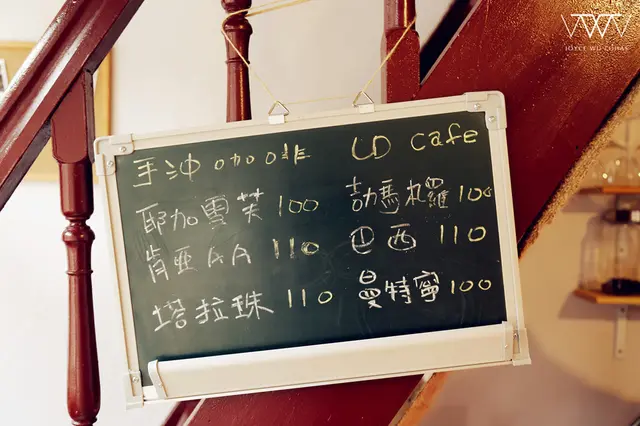 手沖咖啡 cafe
耶加雪芙 100 吉力馬札羅 100
肯亞AA 110 巴西 110
塔拉珠 110 曼特寧 100
JOYCE WU